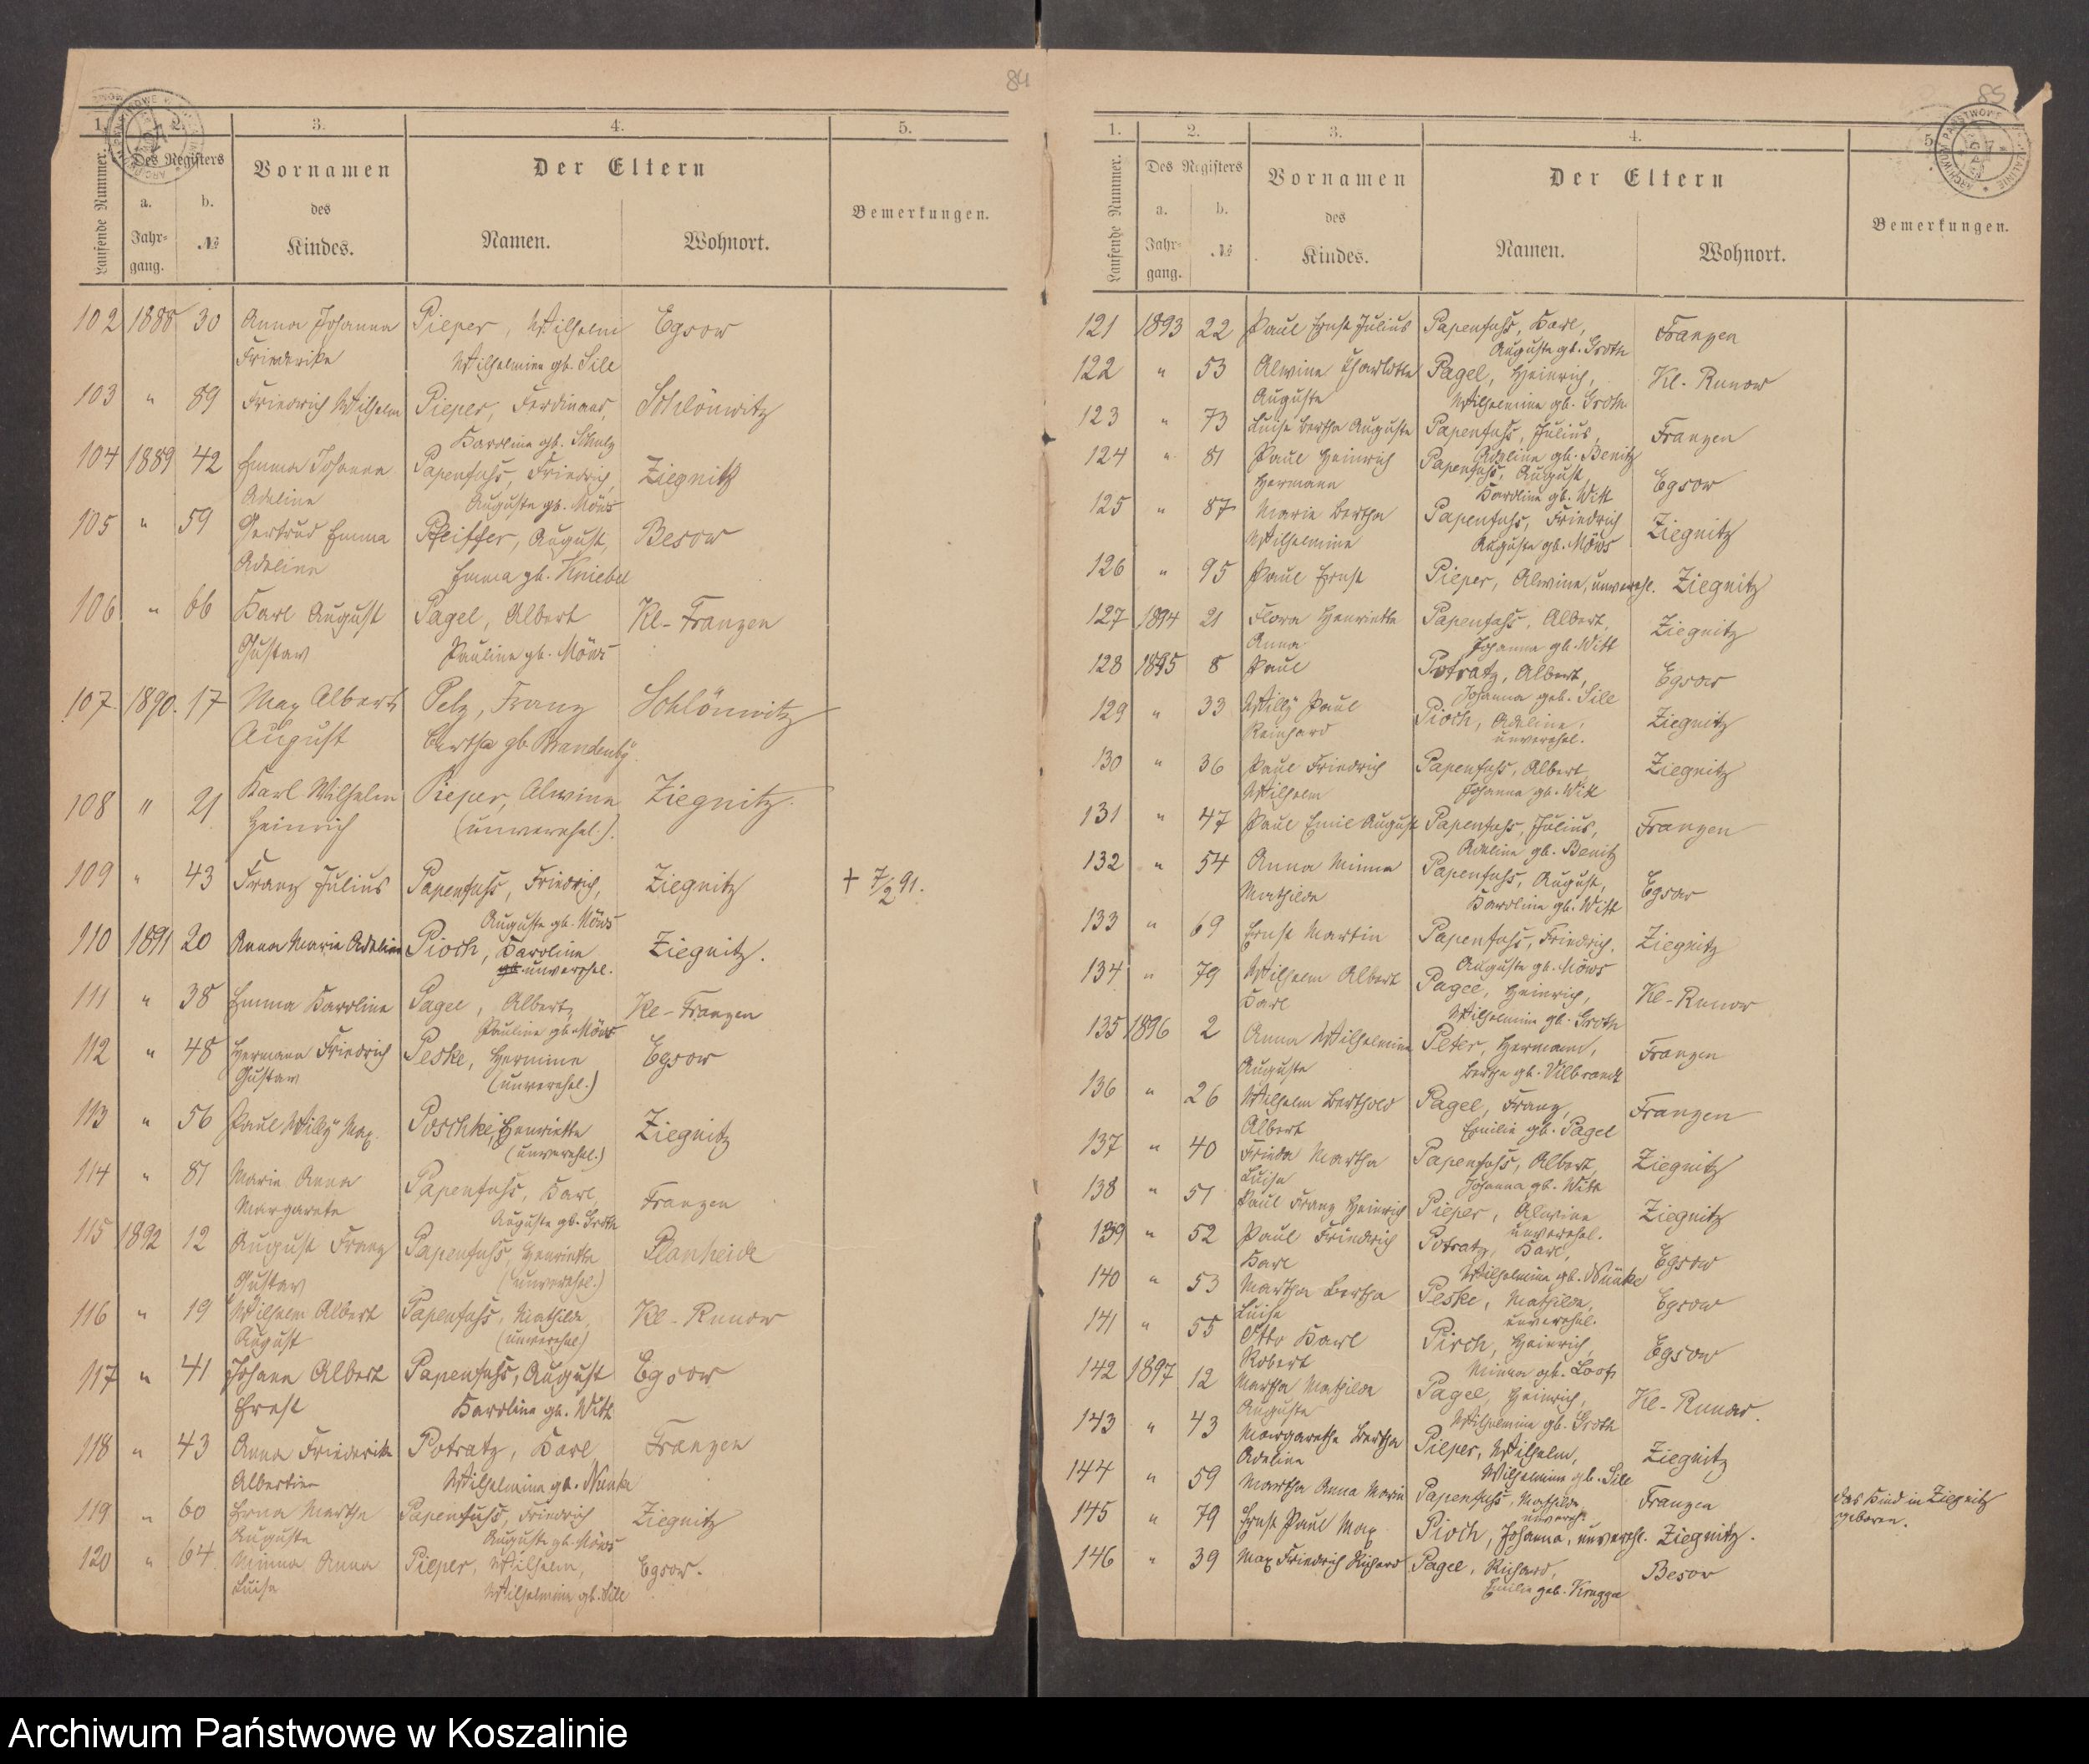 84
1. 2. 3. 4. 5.
Laufende Nummer. Des Registers a. Jahrgang. b. № Vornamen des Kindes. Der Eltern Namen. Wohnort. Bemerkungen.
102 1888 30 Anna Johanna Pieper, Wilhelm Egsow
Friederike Wilhelmine gb. Sill
103 " 89 Friedrich Wilhelm Pieper, Ferdinand, Schlönwitz
Karoline gb. Schulz
104 1889 42 Emma Johanna Papenfuß, Friedrich, Ziegnitz
Adeline Auguste gb. Möws
105 " 59 Gertrud Emma Pfeiffer, August, Besow
Adeline Emma gb. Kniebel
106 " 66 Karl August Pagel, Albert Kl-Franzen
Gustav Pauline gb. Möws
107. 1890. 17 Max Albert Pelz, Franz Schlönwitz
August Bertha gb. Brandenbg.
108 " 21 Karl Wilhelm Pieper, Alwine Ziegnitz.
Heinrich (unverehel.).
109 " 43 Franz Julius Papenfuß, Friedrich, Ziegnitz † 7/2 91.
Auguste gb. Möws
110 1891 20 Anna Marie Adeline Pioch, Karoline Ziegnitz.
gb. unverehel.
111 " 38 Emma Karoline Pagel, Albert, Kl-Franzen
Pauline gb. Möws
112 " 48 Hermann Friedrich Peske, Hermine Egsow
Gustav (unverehel.)
113 " 56 Paul Willy Max. Poschke, Henriette Ziegnitz
(unverehel.)
114 " 81 Marie Anna Papenfuß, Karl, Franzen
Margarete Auguste gb. Groth
115 1892 12 August Franz Papenfuß, Henriette Planheide
Gustav (unverehel.)
116 " 19 Wilhelm Albert Papenfuß, Mathilde, Kl-Runow
August (unverehel)
117 " 41 Johann Albert Papenfuß, August Egsow
Ernst Karoline gb. Witt
118 " 43 Anna Friederike Potratz, Karl Franzen
Albertine Wilhelmine gb.
119 " 60 Erna Martha Papenfuß, Friedrich Ziegnitz
Auguste Auguste gb. Möws
120 " 64 Minna Anna Pieper, Wilhelm, Egsow.
Luise Wilhelmine gb. Sill
85
1. 2. 3. 4. 5.
Laufende Nummer. Des Registers a. Jahrgang. b. № Vornamen des Kindes. Der Eltern Namen. Wohnort. Bemerkungen.
121 1893 22 Paul Ernst Julius Papenfuß, Karl, Franzen
Auguste gb. Groth
122 " 53 Alwine Charlotte Pagel, Heinrich, Kl-Runow
Auguste Wilhelmine gb. Groth
123 " 73 Luise Bertha Auguste Papenfuß, Julius, Franzen
Adeline gb. Benitz
124 " 81 Paul Heinrich Papenfuß, August, Egsow
Hermann Karoline gb. Witt
125 " 87 Marie Bertha Papenfuß, Friedrich Ziegnitz
Wilhelmine Auguste gb. Möws
126 " 95 Paul Ernst Pieper, Alwine, unverehl. Ziegnitz
127 1894 21 Flora Henriette Papenfuß, Albert, Ziegnitz
Anna Johanna gb. Witt
128 1895 8 Paul Potratz, Albert, Egsow
Johanna geb. Sill
129 " 33 Willy Paul Pioch, Adeline, Ziegnitz
Reinhard unverehel.
130 " 36 Paul Friedrich Papenfuß, Albert, Ziegnitz
Wilhelm Johanna gb. Witt
131 " 47 Paul Emil August Papenfuß, Julius, Franzen
Adeline gb. Benitz
132 " 54 Anna Minna Papenfuß, August, Egsow
Mathilde Karoline gb. Witt
133 " 69 Ernst Martin Papenfuß, Friedrich, Ziegnitz
Auguste gb. Möws
134 " 79 Wilhelm Albert Pagel, Heinrich, Kl-Runow
Karl Wilhelmine gb. Groth
135 1896 2 Anna Wilhelmine Peter, Hermann, Franzen
Auguste Bertha gb. Vilbrandt
136 " 26 Wilhelm Berthold Pagel, Franz, Franzen
Albert Emilie gb. Pagel
137 " 40 Frieda Martha Papenfuß, Albert, Ziegnitz
Luise Johanna gb. Witt
138 " 51 Paul Franz Heinrich Pieper, Alwine Ziegnitz
unverehel.
139 " 52 Paul Friedrich Potratz, Karl, Egsow
Karl Wilhelmine gb.
140 " 53 Martha Bertha Peske, Mathilde, Egsow
Luise unverehel.
141 " 55 Otto Karl Pirch, Heinrich, Egsow
Robert Minna gb. Loof
142 1897 12 Martha Mathilde Pagel, Heinrich, Kl-Runow.
Auguste Wilhelmine gb. Groth
143 " 43 Margarethe Bertha Pieper, Wilhelm, Ziegnitz
Adeline Wilhelmine gb. Sill
144 " 59 Martha Anna Marie Papenfuß, Mathilde, Franzen das Kind in Ziegnitz
unverehl. geboren.
145 " 79 Ernst Paul Max. Pioch, Johanna, unverehl. Ziegnitz.
146 " 39 Max Friedrich Richard Pagel, Richard, Besow
Emilie geb.
Archiwum Państwowe w Koszalinie